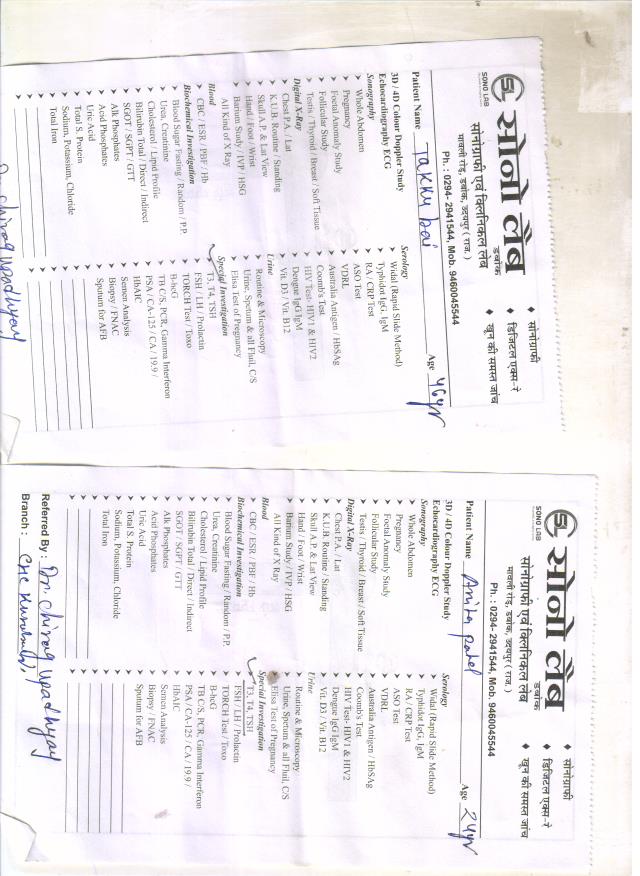 SL
SONO LAB
सोनो लैब
डबोक
सोनोग्राफी एवं क्लिनिकल लेब
मावली रोड़, डबोक, उदयपुर ( राज. )
Ph. : 0294- 2941544, Mob. 9460045544
सोनोग्राफी
डिजिटल एक्स-रे
खून की समस्त जांच
Patient Name Takku bai Age 46 yr
3D / 4D Colour Doppler Study
Echocardiography ECG
Sonography
Whole Abdomen
Pregnancy
Foetal Anomaly Study
Follicular Study
Testis / Thyroid / Breast / Soft Tissue
Digital X-Ray
Chest P.A. / Lat
K.U.B. Routine / Standing
Skull A.P. & Lat View
Hand / Foot / Wrist
Barium Study / IVP / HSG
All Kind of X Ray
Blood
CBC / ESR / PBF / Hb
Biochemical Investigation
Blood Sugar Fasting / Random / P.P.
Urea, Creatinine
Cholesterol / Lipid Profile
Bilirubin Total / Direct / Indirect
SGOT / SGPT / GTT
Alk Phosphates
Acid Phosphates
Uric Acid
Total S. Protein
Sodium, Potassium, Chloride
Total Iron
Serology
Widal (Rapid Slide Method)
Typhidot IgG, IgM
RA / CRP Test
ASO Test
VDRL
Australia Antigen / HbSAg
Coomb's Test
HIV Test- HIV1 & HIV2
Dengue IgG IgM
Vit. D3 / Vit. B12
Urine
Routine & Microscopy
Urine, Spetum & all Fluil, C/S
Elisa Test of Pregnancy
Special Investigation
T3, T4, TSH
FSH / LH / Prolactin
TORCH Test / Toxo
B-hcG
TB C/S, PCR, Gamma Interferon
PSA / CA-125 / CA / 19.9 /
HbAIC
Semen Analysis
Biopsy / FNAC
Sputum for AFB
Dr. chirag upadhyay
SL
SONO LAB
सोनो लैब
डबोक
सोनोग्राफी एवं क्लिनिकल लेब
मावली रोड़, डबोक, उदयपुर ( राज. )
Ph. : 0294- 2941544, Mob. 9460045544
सोनोग्राफी
डिजिटल एक्स-रे
खून की समस्त जांच
Patient Name Anita patel Age 24 yr
3D / 4D Colour Doppler Study
Echocardiography ECG
Sonography
Whole Abdomen
Pregnancy
Foetal Anomaly Study
Follicular Study
Testis / Thyroid / Breast / Soft Tissue
Digital X-Ray
Chest P.A. / Lat
K.U.B. Routine / Standing
Skull A.P. & Lat View
Hand / Foot / Wrist
Barium Study / IVP / HSG
All Kind of X Ray
Blood
CBC / ESR / PBF / Hb
Biochemical Investigation
Blood Sugar Fasting / Random / P.P.
Urea, Creatinine
Cholesterol / Lipid Profile
Bilirubin Total / Direct / Indirect
SGOT / SGPT / GTT
Alk Phosphates
Acid Phosphates
Uric Acid
Total S. Protein
Sodium, Potassium, Chloride
Total Iron
Serology
Widal (Rapid Slide Method)
Typhidot IgG, IgM
RA / CRP Test
ASO Test
VDRL
Australia Antigen / HbSAg
Coomb's Test
HIV Test- HIV1 & HIV2
Dengue IgG IgM
Vit. D3 / Vit. B12
Urine
Routine & Microscopy
Urine, Spetum & all Fluil, C/S
Elisa Test of Pregnancy
Special Investigation
T3, T4, TSH
FSH / LH / Prolactin
TORCH Test / Toxo
B-hcG
TB C/S, PCR, Gamma Interferon
PSA / CA-125 / CA / 19.9 /
HbAIC
Semen Analysis
Biopsy / FNAC
Sputum for AFB
Referred By : Dr. Chirag upadhyay
Branch : CHC